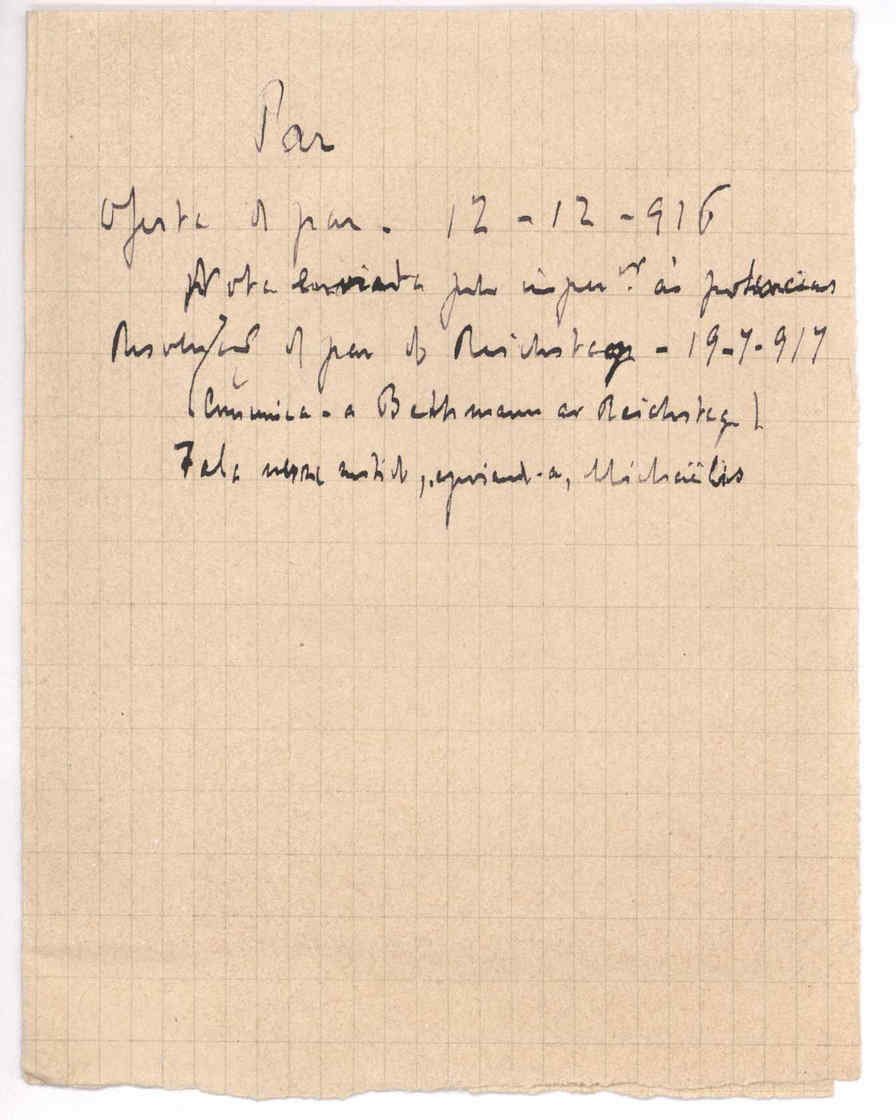 Paz
Oferta de paz. 12-12-916
Nota enviada pelo imperor às potencias
Resolução de paz do Reichstag - 19-7-917
(Comunica-a Bethmann ao Reichstag)
Fala nesse sentido, apoiando-a, Michaëlis